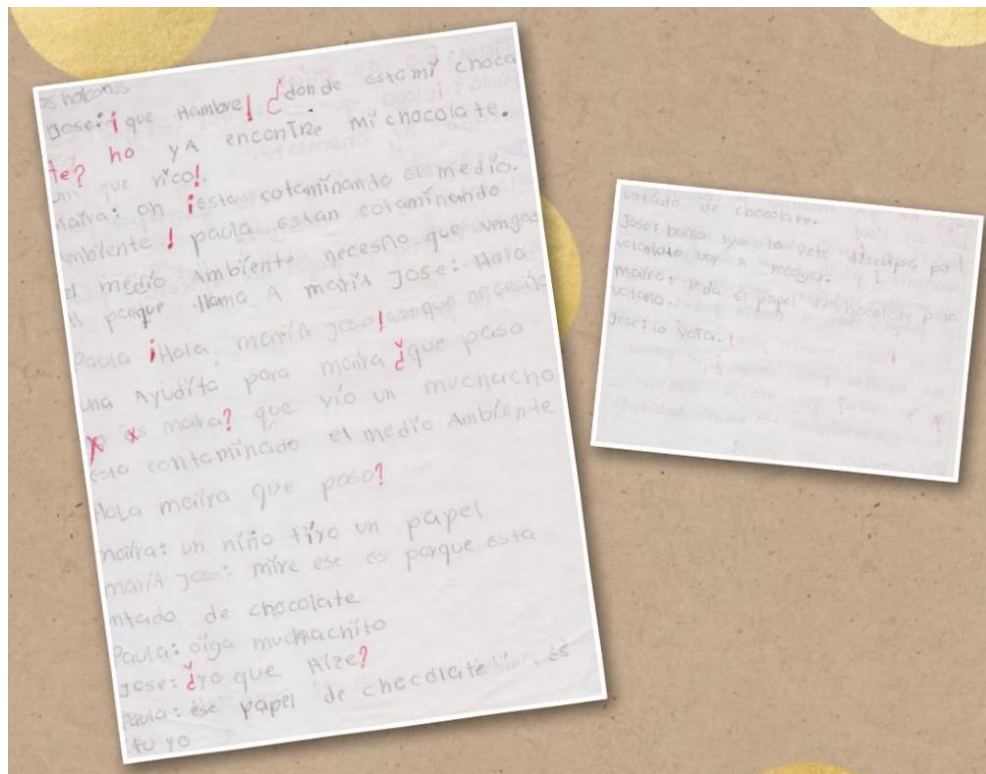 Jose: ¡que Hambre! ¿donde esta mi choca
te? ho YA enconTRe mi chocolate.
que rico!
maira: oh ¡esta cotaminando el medio.
ambiente! paola estan cotaminando
el medio Ambiente necesito que vengas
porque llama A mariA Jose: Hola
Paula ¡Hola, mariA jose! esque necesito
una Ayudita para maira ¿que paso
maira? que vio un muchacho
esta contaminado el medio Ambiente
HoLa maiira que paso?
maiira: un niño tiro un papel
mariA jose: mire ese es porque esta
ntado de chocolate
Paula: oiga muchachito
Jose: ¿yo que Hize?
paula: ese papel de chocolate es
tu yo
untado de chocolate.
Jose: bueno yo lo vote disculpa por
votarlo voy A recoger.
maira: el papel de chocolate para
votarlo.
Jose: lo vota.!